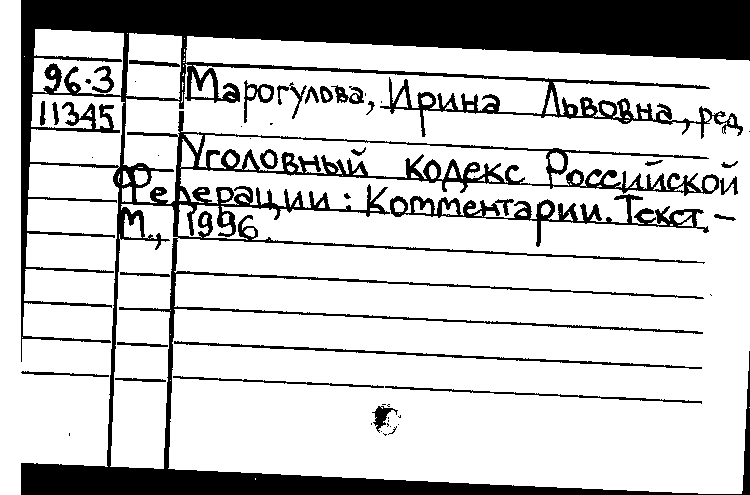 96-3 Марогулова, Ирина Львовна, ред.
11345
Уголовный кодекс Российской
Федерации: Комментарии. Текст. –
М., 1996.